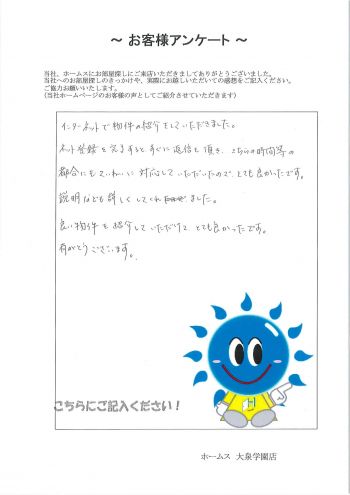 ～ お客様アンケート ～
当社、ホームスにお部屋探しにご来店いただきましてありがとうございました。
当社へのお部屋探しのきっかけや、実際にお越しいただいての感想をご記入ください。
ご協力お願いいたします。
(当社ホームページのお客様の声としてご紹介させていただきます)
インターネットで物件の紹介をしていただきました。
ネット登録を完了するとすぐに返信を頂き、こちらの時間等の
都合にもていねいに対応していただいたので、とても良かったです。
説明なども詳しくしてくれました。
良い物件を紹介していただけて、とても良かったです。
有がとうございます。
こちらにご記入ください！
ホームス 大泉学園店